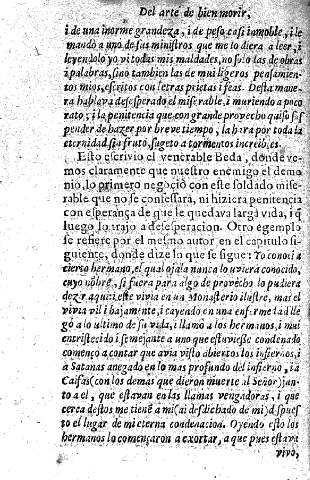 Del arte de bien morir,
i de una inorme grandeza, i de peso casi inmoble, i le
mandò a uno de sus ministros que me lo diera a leer, i
leyendolo yo vi todas mis maldades, no solo las de obras
i palabras, sino tambien las de mui ligeros pensamien-
tos mios, escritos con letras prietas i feas. Desta mane-
ra hablava desesperado el miserable, i muriendo a poco
rato; i la penitencia que con grande provecho quiso sus
pender de hazer por breve tiempo, la hara por toda la
eternidad sin fruto, sugeto a tormentos increibles.
Esto escrivio el venerable Beda, donde ve-
mos claramente que nuestro enemigo el demo
nio, lo primero negociò con este soldado mise-
rable que no se confessara, ni hiziera penitencia
con esperança de que le quedava larga vida, i q̃
luego lo trajo a desesperacion. Otro egemplo
se refiere por el mesmo autor en el capitulo si-
guiente, donde dize lo que se sigue: Yo conoci a
cierto hermano, el qual ojala nunca lo uviera conocido,
cuyo nõbre, si fuera para algo de provecho lo pudiera
dezir aqui: este vivia en un Monasterio ilustre, mas el
vivia vil i bajamente, i cayendo en una enfermedad lle
gò a lo ultimo de su vida, i llamò a los hermanos, i mui
entristecido i semejante a uno que estuviesse condenado
començò a contar que avia visto abiertos los infiernos, i
a Satanas anegado en lo mas profundo del infierno, i a
Caifas (con los demas que dieron muerte al Señor) jun
to a el, que estavan en las llamas vengadoras, i que
cerca destos me tiene a mi (ai desdichado de mi) dspues
to el lugar de mi eterna condenacion. Oyendo esto los
hermanos lo començaron a exortar, a que pues estava
vivo,